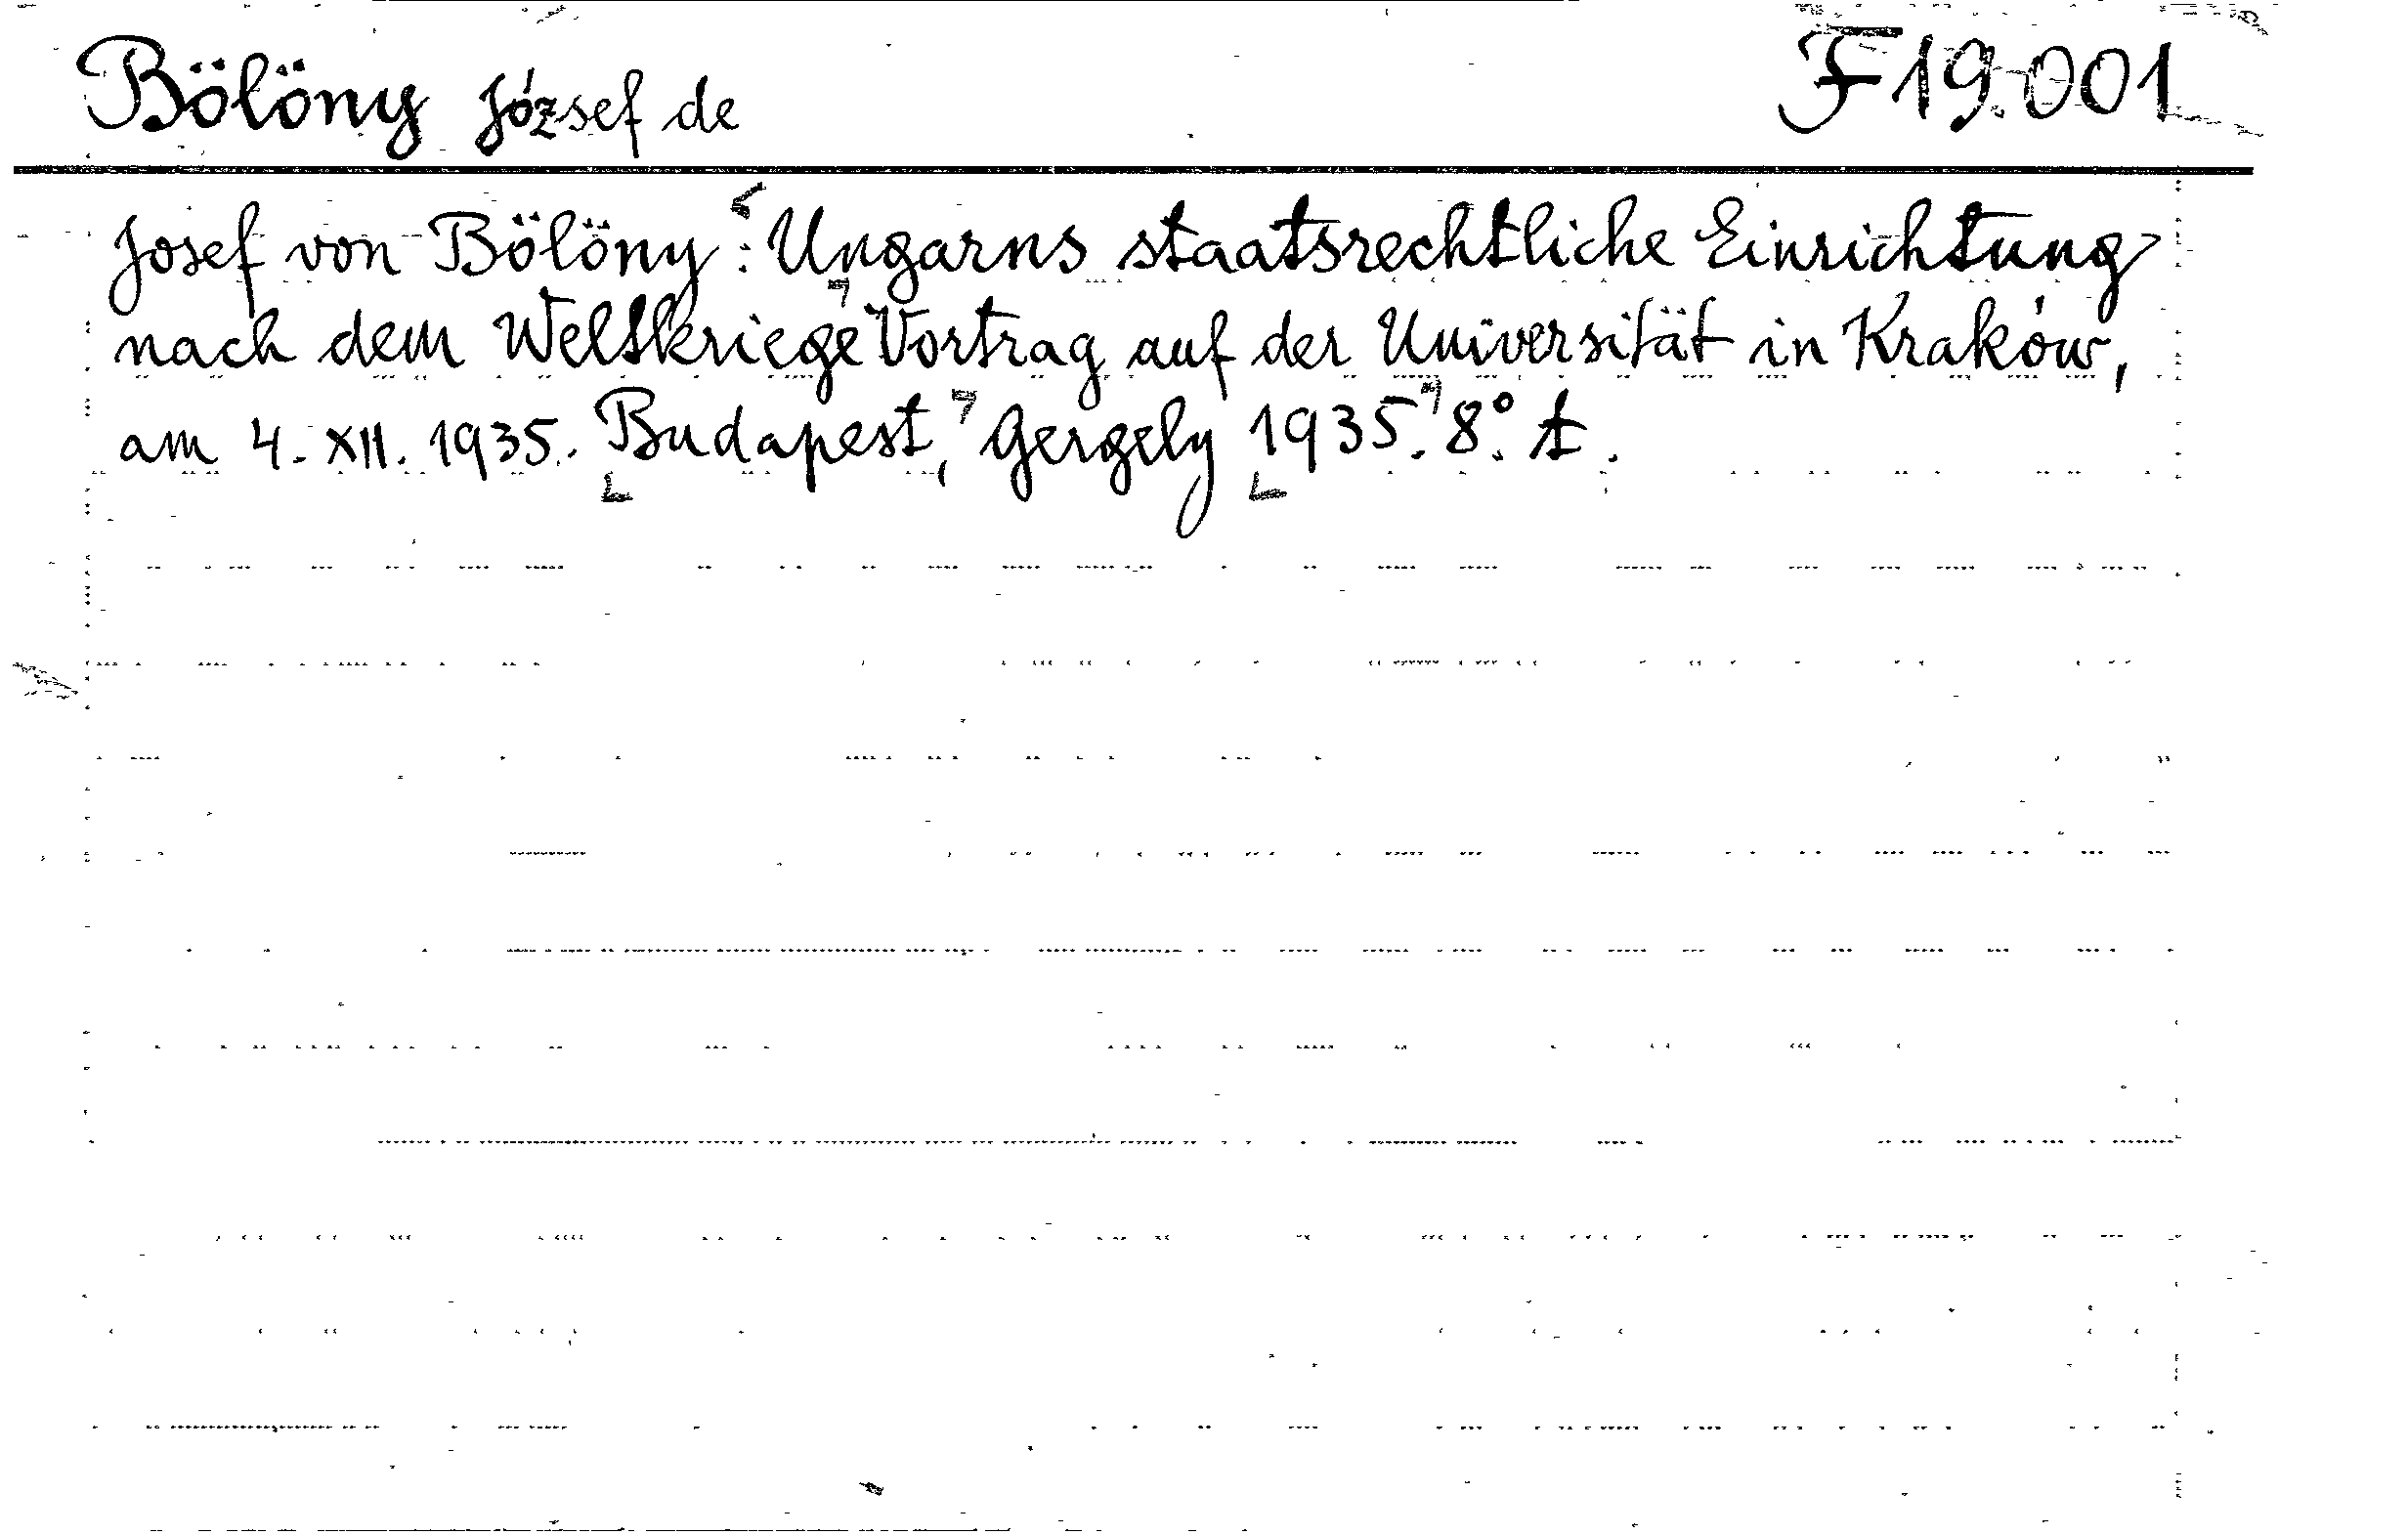 Bölöny József de F 19.001
Josef von Bölöny: Ungarns staatsrechtliche Einrichtung
nach dem Weltkriege Vortrag auf der Universität in Kraków,
am 4. XII. 1935. Budapest, Gergely 1935. 8.°